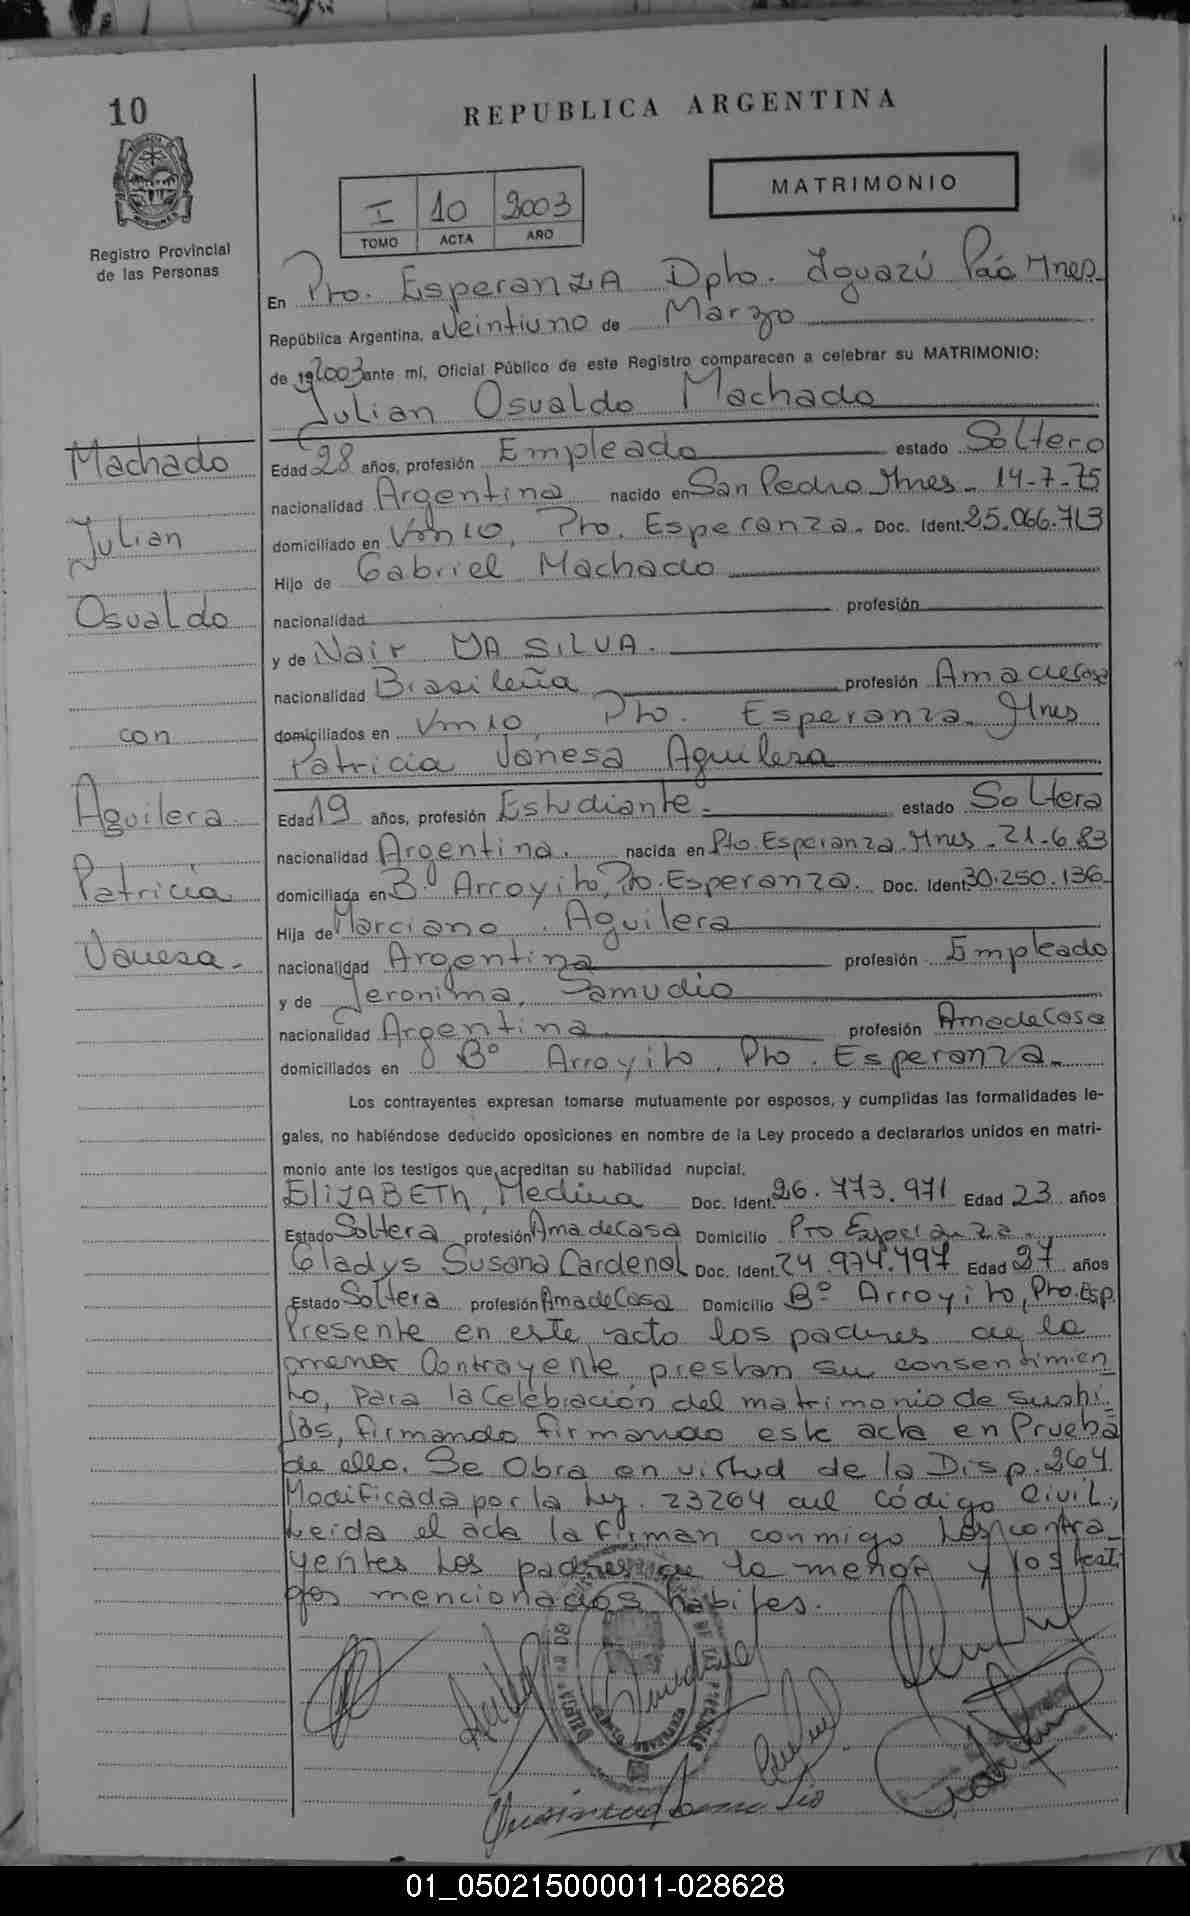 10
REPUBLICA ARGENTINA
MATRIMONIO
I 10 2003
TOMO ACTA AÑO
Registro Provincial
de las Personas
En Pto. Esperanza Dpto. Iguazú Mnes
República Argentina, a Veintiuno de Marzo
de 19 2003 ante mí, Oficial Público de este Registro comparecen a celebrar su MATRIMONIO:
Julian Osvaldo Machado
Machado
Julian
Osvaldo
con
Aguilera
Patricia
Vanesa.
Edad 28 años, profesión Empleado estado Soltero
nacionalidad Argentina nacido en San Pedro Mnes - 14-7-75
domiciliado en Km 10, Pto. Esperanza. Doc. Ident. 25.066.713
Hijo de Gabriel Machado
nacionalidad profesión
y de Nair DA SILVA.
nacionalidad Brasileña profesión Ama de Casa
domiciliados en Km 10, Pto. Esperanza - Mnes
Patricia Vanesa Aguilera
Edad 19 años, profesión Estudiante - estado Soltera
nacionalidad Argentina. nacida en Pto. Esperanza - Mnes - 21-6-83
domiciliada en Bº Arroyito, Pto. Esperanza. Doc. Ident. 30.250.136
Hija de Marciano Aguilera
nacionalidad Argentina profesión Empleado
y de Jeronima, Samudio
nacionalidad Argentina profesión Ama de Casa
domiciliados en Bº Arroyito, Pto. Esperanza.-
Los contrayentes expresan tomarse mutuamente por esposos, y cumplidas las formalidades le-
gales, no habiéndose deducido oposiciones en nombre de la Ley procedo a declararlos unidos en matri-
monio ante los testigos que acreditan su habilidad nupcial.
ElizABETh, Medina Doc. Ident. 26.773.971 Edad 23 años
Estado Soltera profesión Ama de Casa Domicilio Pto Esperanza
Gladys Susana Cardenal Doc. Ident. 24.974.497 Edad 27 años
Estado Soltera profesión Ama de Casa Domicilio Bº Arroyito, Pto. Esp.
Presente en este acto los padres de la
menor Contrayente prestan su consentimien
to, para la Celebración del matrimonio de su hi
jas, firmando firmando este acta en Prueba
de ello. Se Obra en virtud de la Disp. 264
Modificada por la Ley. 23264 del Código Civil.,
Leida el acta la firman conmigo los contra_
yentes Los padres de la menor y los testi
gos mencionados habiles.
01_050215000011-028628